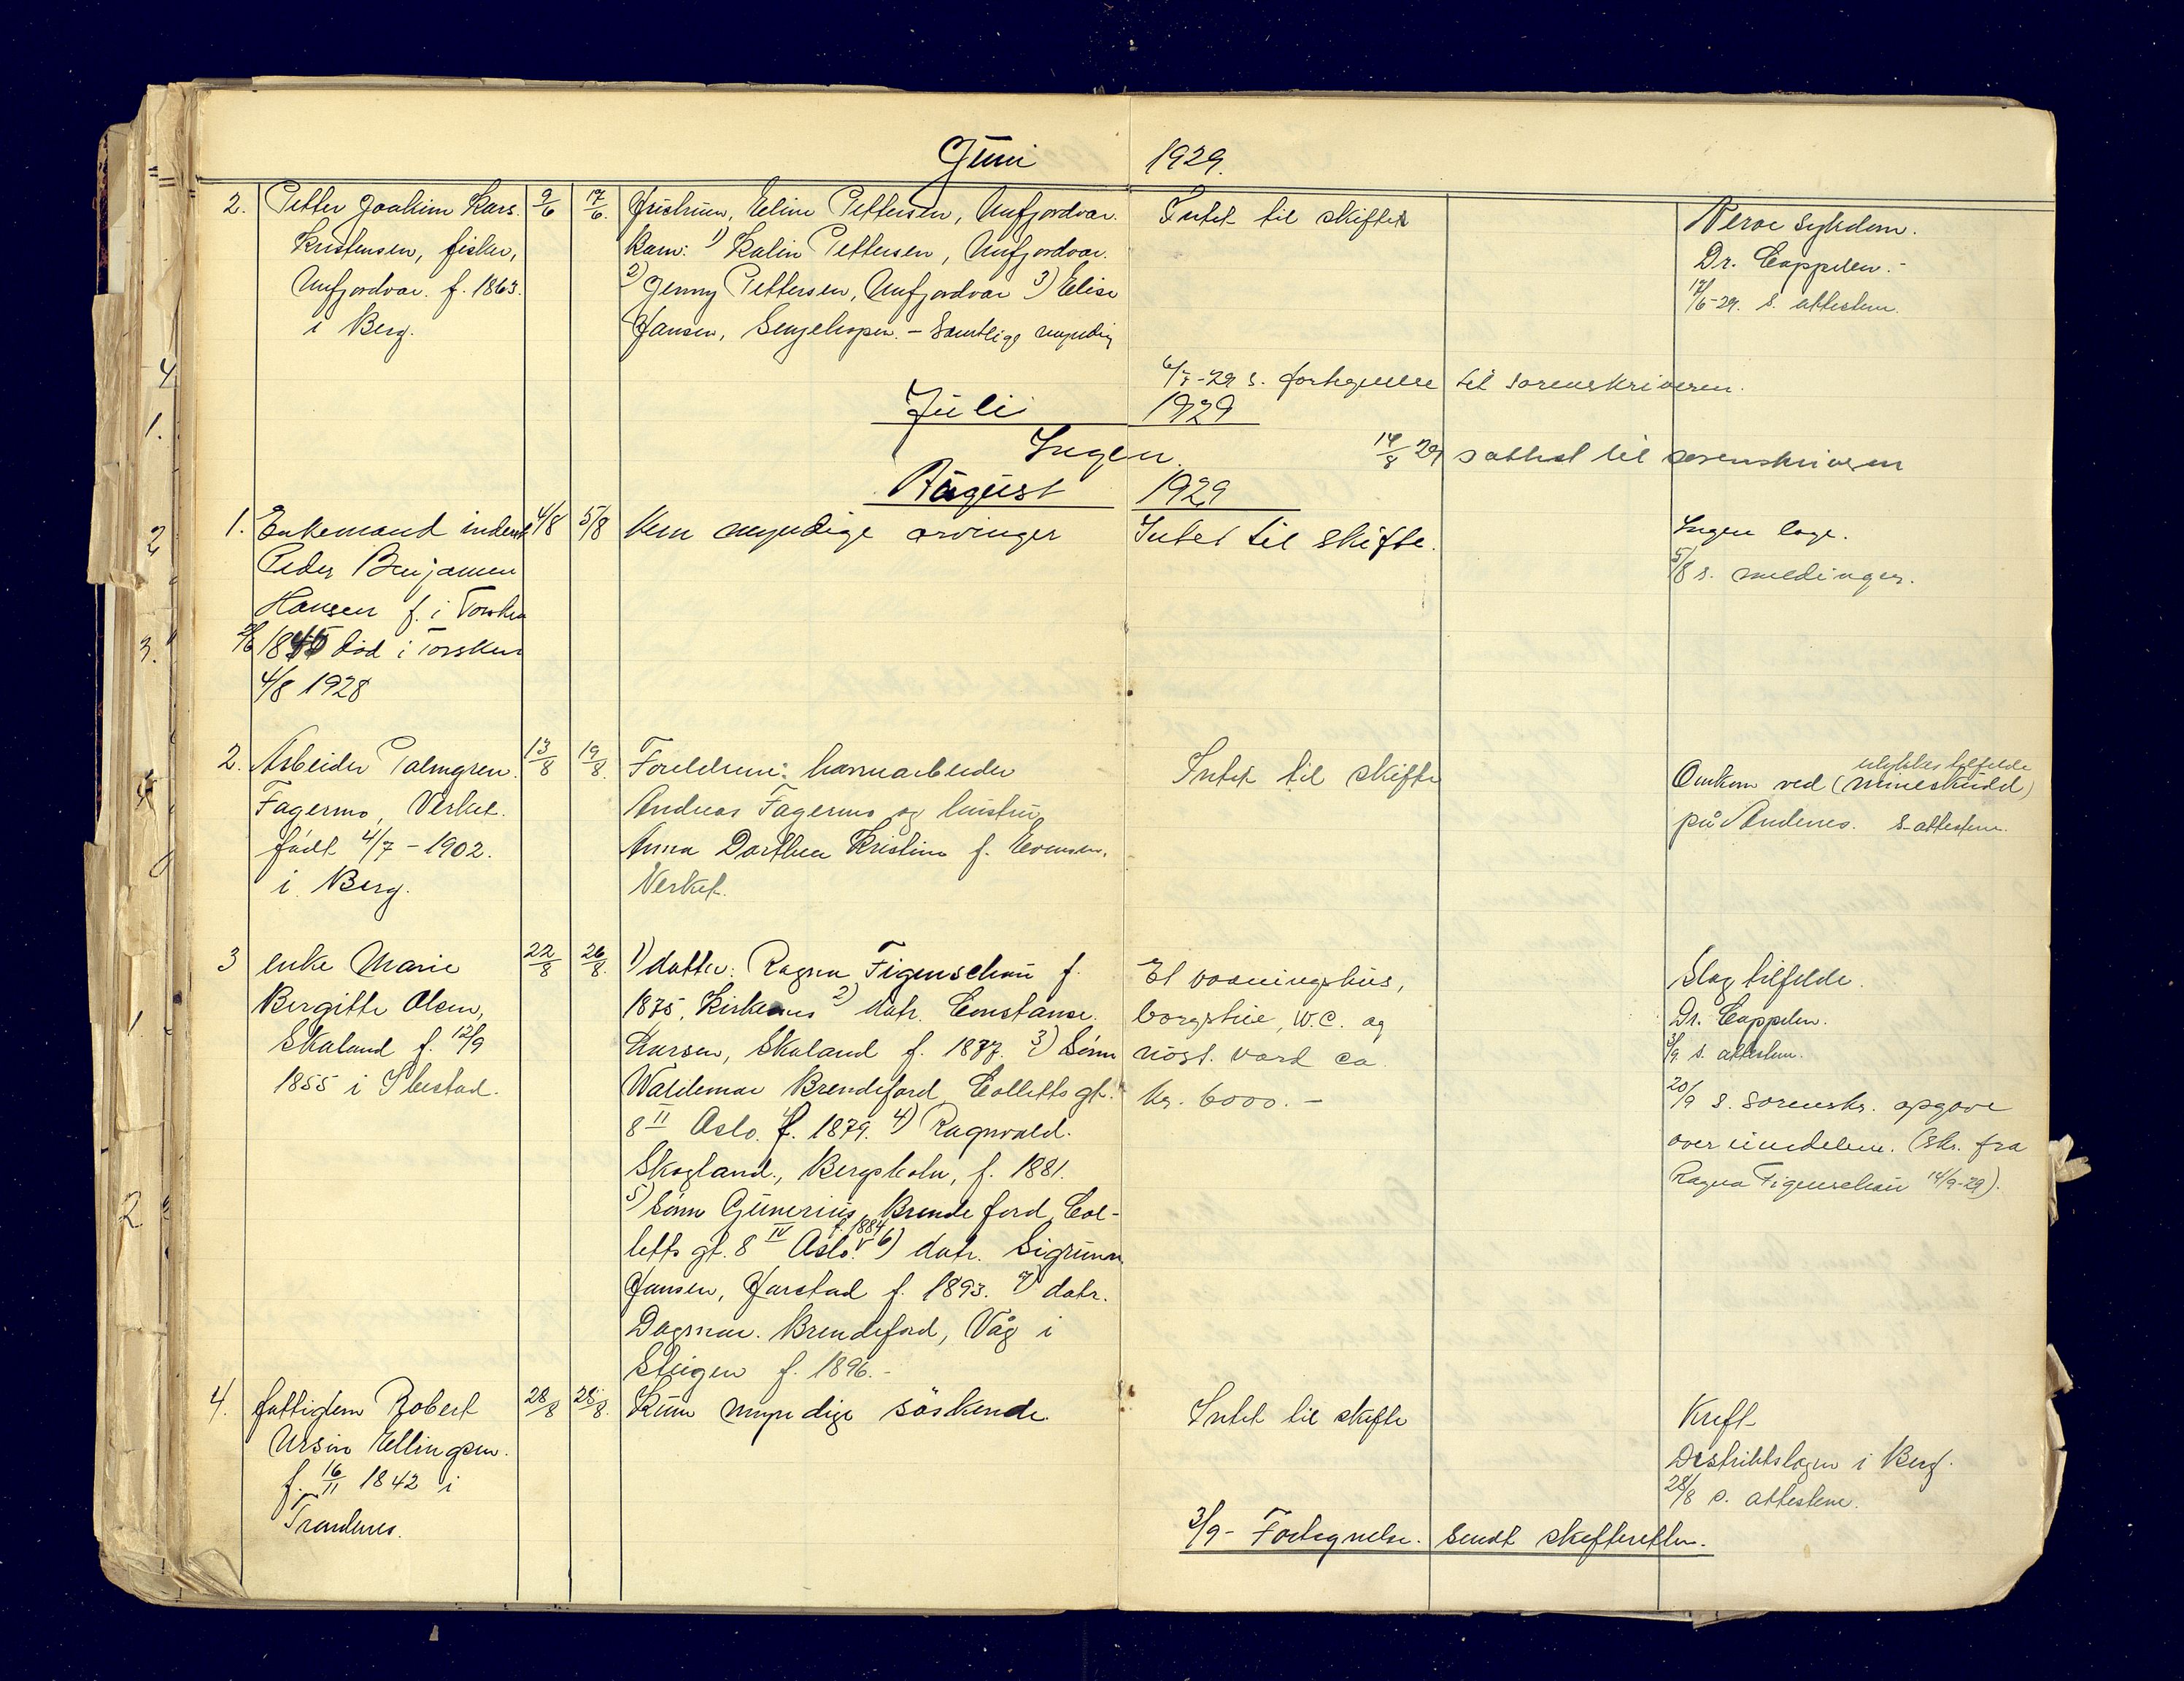 Juni 1929.
2. Petter Joakim Kars. 9/6 17/6. Hustruen, Eline Pettersen, Aufjordvær. Intet til skifte Nerve sykdom.
Kristensen, fisker, Barn: 1) Kalin Pettersen, Aufjordvær. Dr. Cappelen.-
Aufjordvær. f. 1863. 2) Jenny Pettersen, Aufjordvær 3) Elise 17/6-29. s. attesten.
i Berg. Hansen, Senjehopen. - Samtlige myndig
6/7-29 s. fortegnelse til sorenskriveren.
Juli 1929
Ingen. 14/8 29 s attest til sorenskriveren
August 1929
1. Enkemand inderst 4/8 5/8 Kun myndige arvinger Intet til skifte. Ingen læge.
Peder Benjamen 5/8 s. meldingen.
Hansen f. i Torsken
1845 död i Torsken
4/8 1928
2. Arbeider Palmgren 13/8 19/8. Foreldrene: havnearbeider Intet til skifte Omkom ved ulykkestilfelde (mineskudd)
Fagermo, Verket. Andreas Fagermo og hustru på Andenes. s. attesten.
födt 4/7 - 1902. Anna Dorthea Kristine f. Evensen,
i Berg. Verket.
3 enke Marie 22/8 26/8. 1) datter: Ragna Figenschau f. Et vaaningshus, Slag tilfelde.
Bergitte Olsen, 1875, Kirkenes 2) datr. Constanse borgstue, W.C. og Dr. Cappelen.
Skaland f. 12/9 Larsen, Skaland f. 1877. 3) Sönn nöst. værd ca 3/9 s. attesten.
1855 i Ibestad. Waldemar Brendeford Colletts gt. kr. 6000.- 20/9 s. sorenskr. opgave
8 II Oslo. f. 1879. 4) Ragnvald over eiendelene. (skr. fra
Skogland., Bergsbotn, f. 1881. Ragna Figenschau 14/9-29).
5) Sönn Gunerius Brendeford Col-
letts gt. 8 IV Oslo. f. 1884 6) datr. Sigrunn
Jansen, Harstad f. 1893. 7) datr.
Dagmar. Brendeford, Våg i
Steigen f. 1896.-
4. fattiglem Robert 28/8 28/8. Kun myndige söskende. Intet til skifte Kreft
Ursin Ellingsen. Distriktslægen i Berg.
f. 16/11 1842 i 28/8 s. attesten.
Trondenes.
3/9- Fortegnelse. sendt skifteretten.